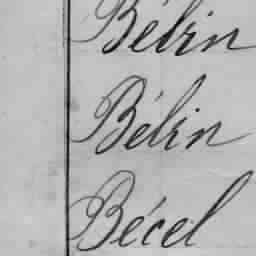 Bélin
Bélin
Bécel